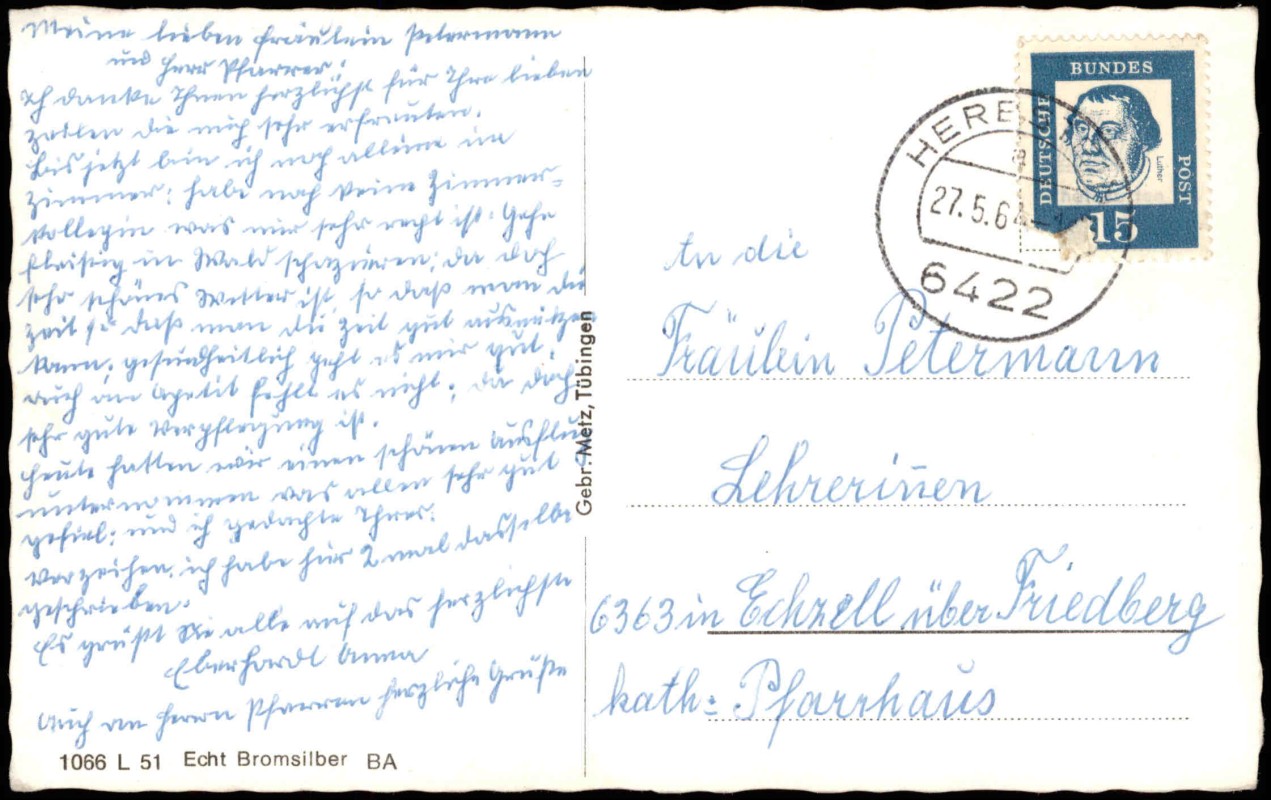 Meine lieben Fräulein Petermann
und Herr Pfarrer!
Ich danke Ihnen herzlichst für Ihre lieben
Zeilen die mich sehr erfreuten.
Bis jetzt bin ich noch alleine im
Zimmer; habe noch keine Zimmer-
kollegin was mir sehr recht ist. Gehe
fleißig in Wald spazieren; da doch
sehr schönes Wetter ist, so daß man die
Zeit so daß man die Zeit gut ausnützen
kann; gesundheitlich geht es mir gut,
auch an Apetit fehlt es nicht; da doch
sehr gute Verpflegung ist.
Heute hatten wir einen schönen Ausflug
unternommen was allen sehr gut
gefiel; und ich gedachte Ihrer.
Verzeihen, ich habe hier 2 mal dasselbe
geschrieben.
Es grüßt Sie alle auf das herzlichste
Eberhardt Anna
Auch an Herrn Pfarrer herzliche Grüße
1066 L 51 Echt Bromsilber BA
Gebr. Metz, Tübingen
DEUTSCHE BUNDES POST
Luther
15
27.5.64
6422
An die
Fräulein Petermann
Lehrerinen
6363 in Echzell über Friedberg
kath: Pfarrhaus